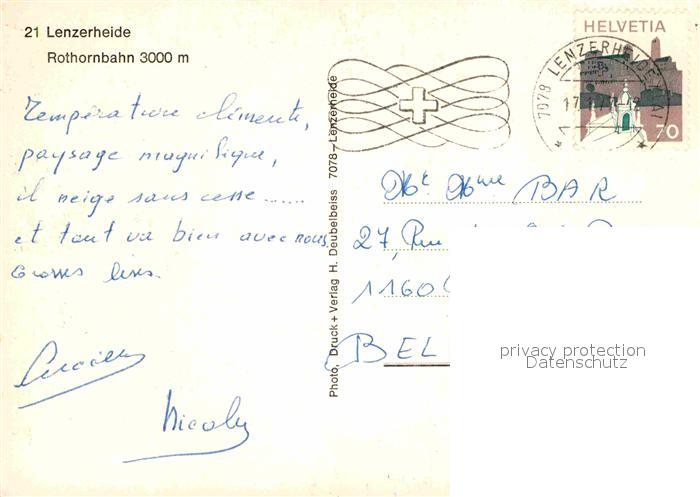 21 Lenzerheide
Rothornbahn 3000 m
Température clémente,
paysage magnifique,
il neige sans cesse......
et tout va bien avec nous.
Grosses bises.
Nicole
Photo, Druck+Verlag H. Deubelbeiss 7078-Lenzerheide
HELVETIA
70
7078 LENZERHEIDE
Mr Mme BAR
27, Rue
1160
BEL
privacy protection
Datenschutz